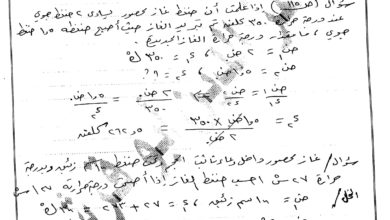 سؤال (ص ١١٥) إذا علمت أن ضغط غاز محصور يساوي ٢ ضغط جوي
عند درجة حرارة ٣٥٠ كلفن تم تبريد الغاز حتى أصبح ضغطه ١٫٥ ضغط
جوي ، فما مقدار درجة حرارة الغاز الجديدة
ض١ = ٢ ض ، ك١ = ٣٥٠ ك
ض٢ = ١٫٥ ض ، ك٢ = ؟
ض١ / ك١ = ض٢ / ك٢ ٢ ض / ٣٥٠ = ١٫٥ ض / ك٢
ك٢ = ١٫٥ ض × ٣٥٠ / ٢ ض = ٢٦٢٫٥ كلفن
سؤال / غاز محصور داخل وعاء ثابت الحجم تحت ضغط زئبق وبدرجة
حرارة ٢٧ س احسب ضغط الغاز إذا أصبحت درجة حرارته س
الحل / ض١ = سم زئبق ، ك١ = ٢٧ + ٢٧٣ = ٣٠٠ ك